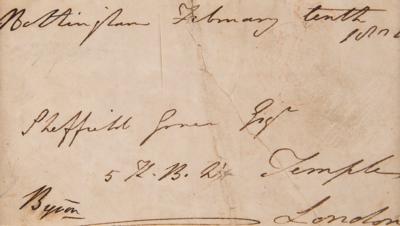 Nottingham February tenth
Sheffield Esqr
5 K. B. Temple
Byron
London